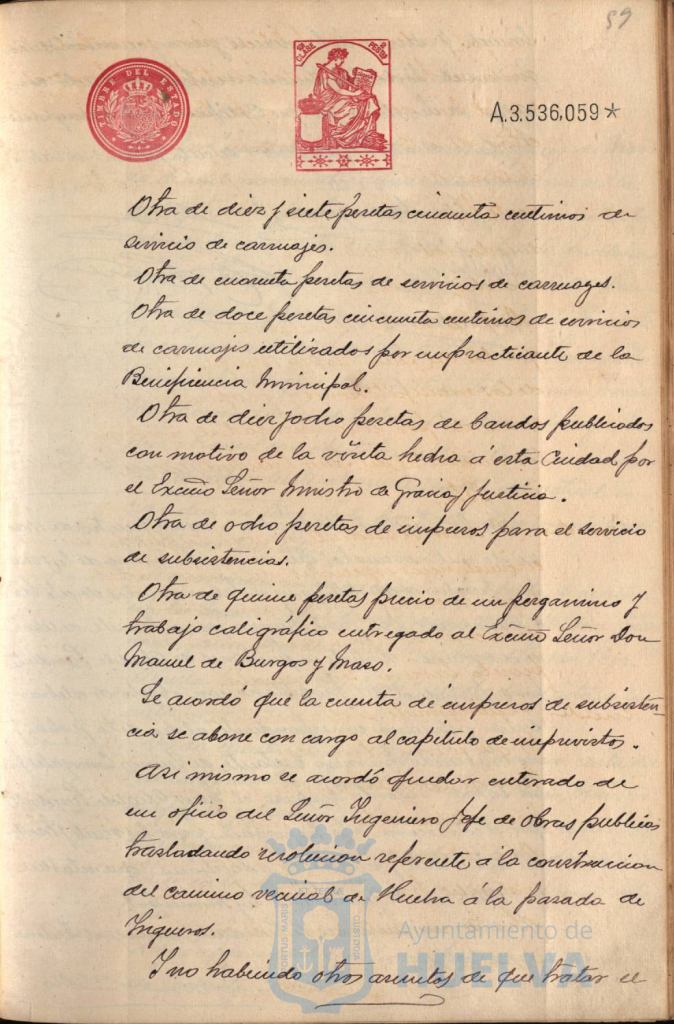 59
TIMBRE DEL ESTADO
CLASE
PESETA
A.3.536,059*
Otra de diez y siete pesetas cincuenta centimos de
servicio de carruajes.
Otra de cuarenta pesetas de servicios de carruages.
Otra de doce pesetas cincuenta centimos de servicios
de carruajes utilizados por un practicante de la
Beneficencia Municipal.
Otra de diez y ocho pesetas de bandos publicados
con motivo de la visita hecha á esta Ciudad por
el Excmo Señor Ministro de Gracia y Justicia.
Otra de ocho pesetas de impresos para el servicio
de subsistencias.
Otra de quince pesetas precio de un pergamino y
trabajo caligráfico entregado al Excmo Señor Don
Manuel de Burgos y Maso.
Se acordó que la cuenta de impresos de subsisten-
cia se abone con cargo al capitulo de imprevistos.
Asi mismo se acordó quedar enterado de
un oficio del Señor Ingeniero Jefe de obras publicas
trasladando resolucion referente á la construccion
del camino vecinal de Huelva á la parada de
Trigueros.
Y no habiendo otros asuntos de que tratar el
Ayuntamiento de
HUELVA